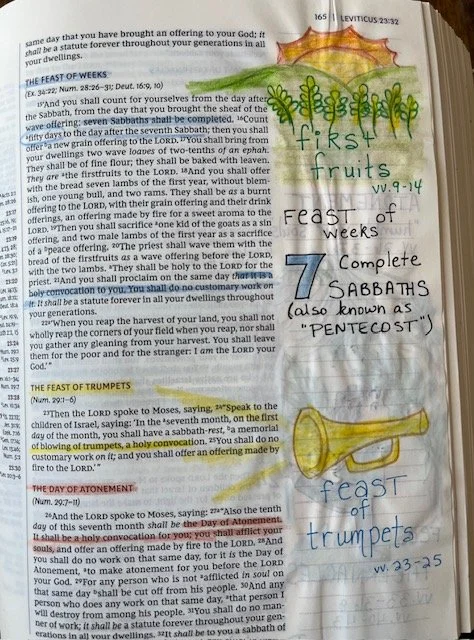 165 | LEVITICUS 23:32
same day that you have brought an offering to your God; it
shall be a statute forever throughout your generations in all
your dwellings.
THE FEAST OF WEEKS
(Ex. 34:22; Num. 28:26–31; Deut. 16:9, 10)
15"And you shall count for yourselves from the day after
the Sabbath, from the day that you brought the sheaf of the
wave offering: seven Sabbaths shall be completed. 16Count
fifty days to the day after the seventh Sabbath; then you shall
offer a new grain offering to the LORD. 17You shall bring from
your dwellings two wave loaves of two-tenths of an ephah.
They shall be of fine flour; they shall be baked with leaven.
They are the firstfruits to the LORD. 18And you shall offer
with the bread seven lambs of the first year, without blem-
ish, one young bull, and two rams. They shall be as a burnt
offering to the LORD, with their grain offering and their drink
offerings, an offering made by fire for a sweet aroma to the
LORD. 19Then you shall sacrifice one kid of the goats as a sin
offering, and two male lambs of the first year as a sacrifice
of a peace offering. 20The priest shall wave them with the
bread of the firstfruits as a wave offering before the LORD,
with the two lambs. They shall be holy to the LORD for the
priest. 21And you shall proclaim on the same day that it is a
holy convocation to you. You shall do no customary work on
it. It shall be a statute forever in all your dwellings throughout
your generations.
22"When you reap the harvest of your land, you shall not
wholly reap the corners of your field when you reap, nor shall
you gather any gleaning from your harvest. You shall leave
them for the poor and for the stranger: I am the LORD your
God.'"
THE FEAST OF TRUMPETS
(Num. 29:1–6)
23Then the LORD spoke to Moses, saying, 24"Speak to the
children of Israel, saying: 'In the seventh month, on the first
day of the month, you shall have a sabbath-rest, a memorial
of blowing of trumpets, a holy convocation. 25You shall do no
customary work on it; and you shall offer an offering made by
fire to the LORD.'"
THE DAY OF ATONEMENT
(Num. 29:7–11)
26And the LORD spoke to Moses, saying: 27"Also the tenth
day of this seventh month shall be the Day of Atonement.
It shall be a holy convocation for you; you shall afflict your
souls, and offer an offering made by fire to the LORD. 28And
you shall do no work on that same day, for it is the Day of
Atonement, to make atonement for you before the LORD
your God. 29For any person who is not afflicted in soul on
that same day shall be cut off from his people. 30And any
person who does any work on that same day, that person I
will destroy from among his people. 31You shall do no man-
ner of work; it shall be a statute forever throughout your gen-
erations in all your dwellings. 32It shall be to you a sabbath of
first
fruits
vv. 9-14
FEAST of
weeks
7 Complete
SABBATHS
(also known as
"PENTECOST")
feast
of
trumpets
vv. 23-25